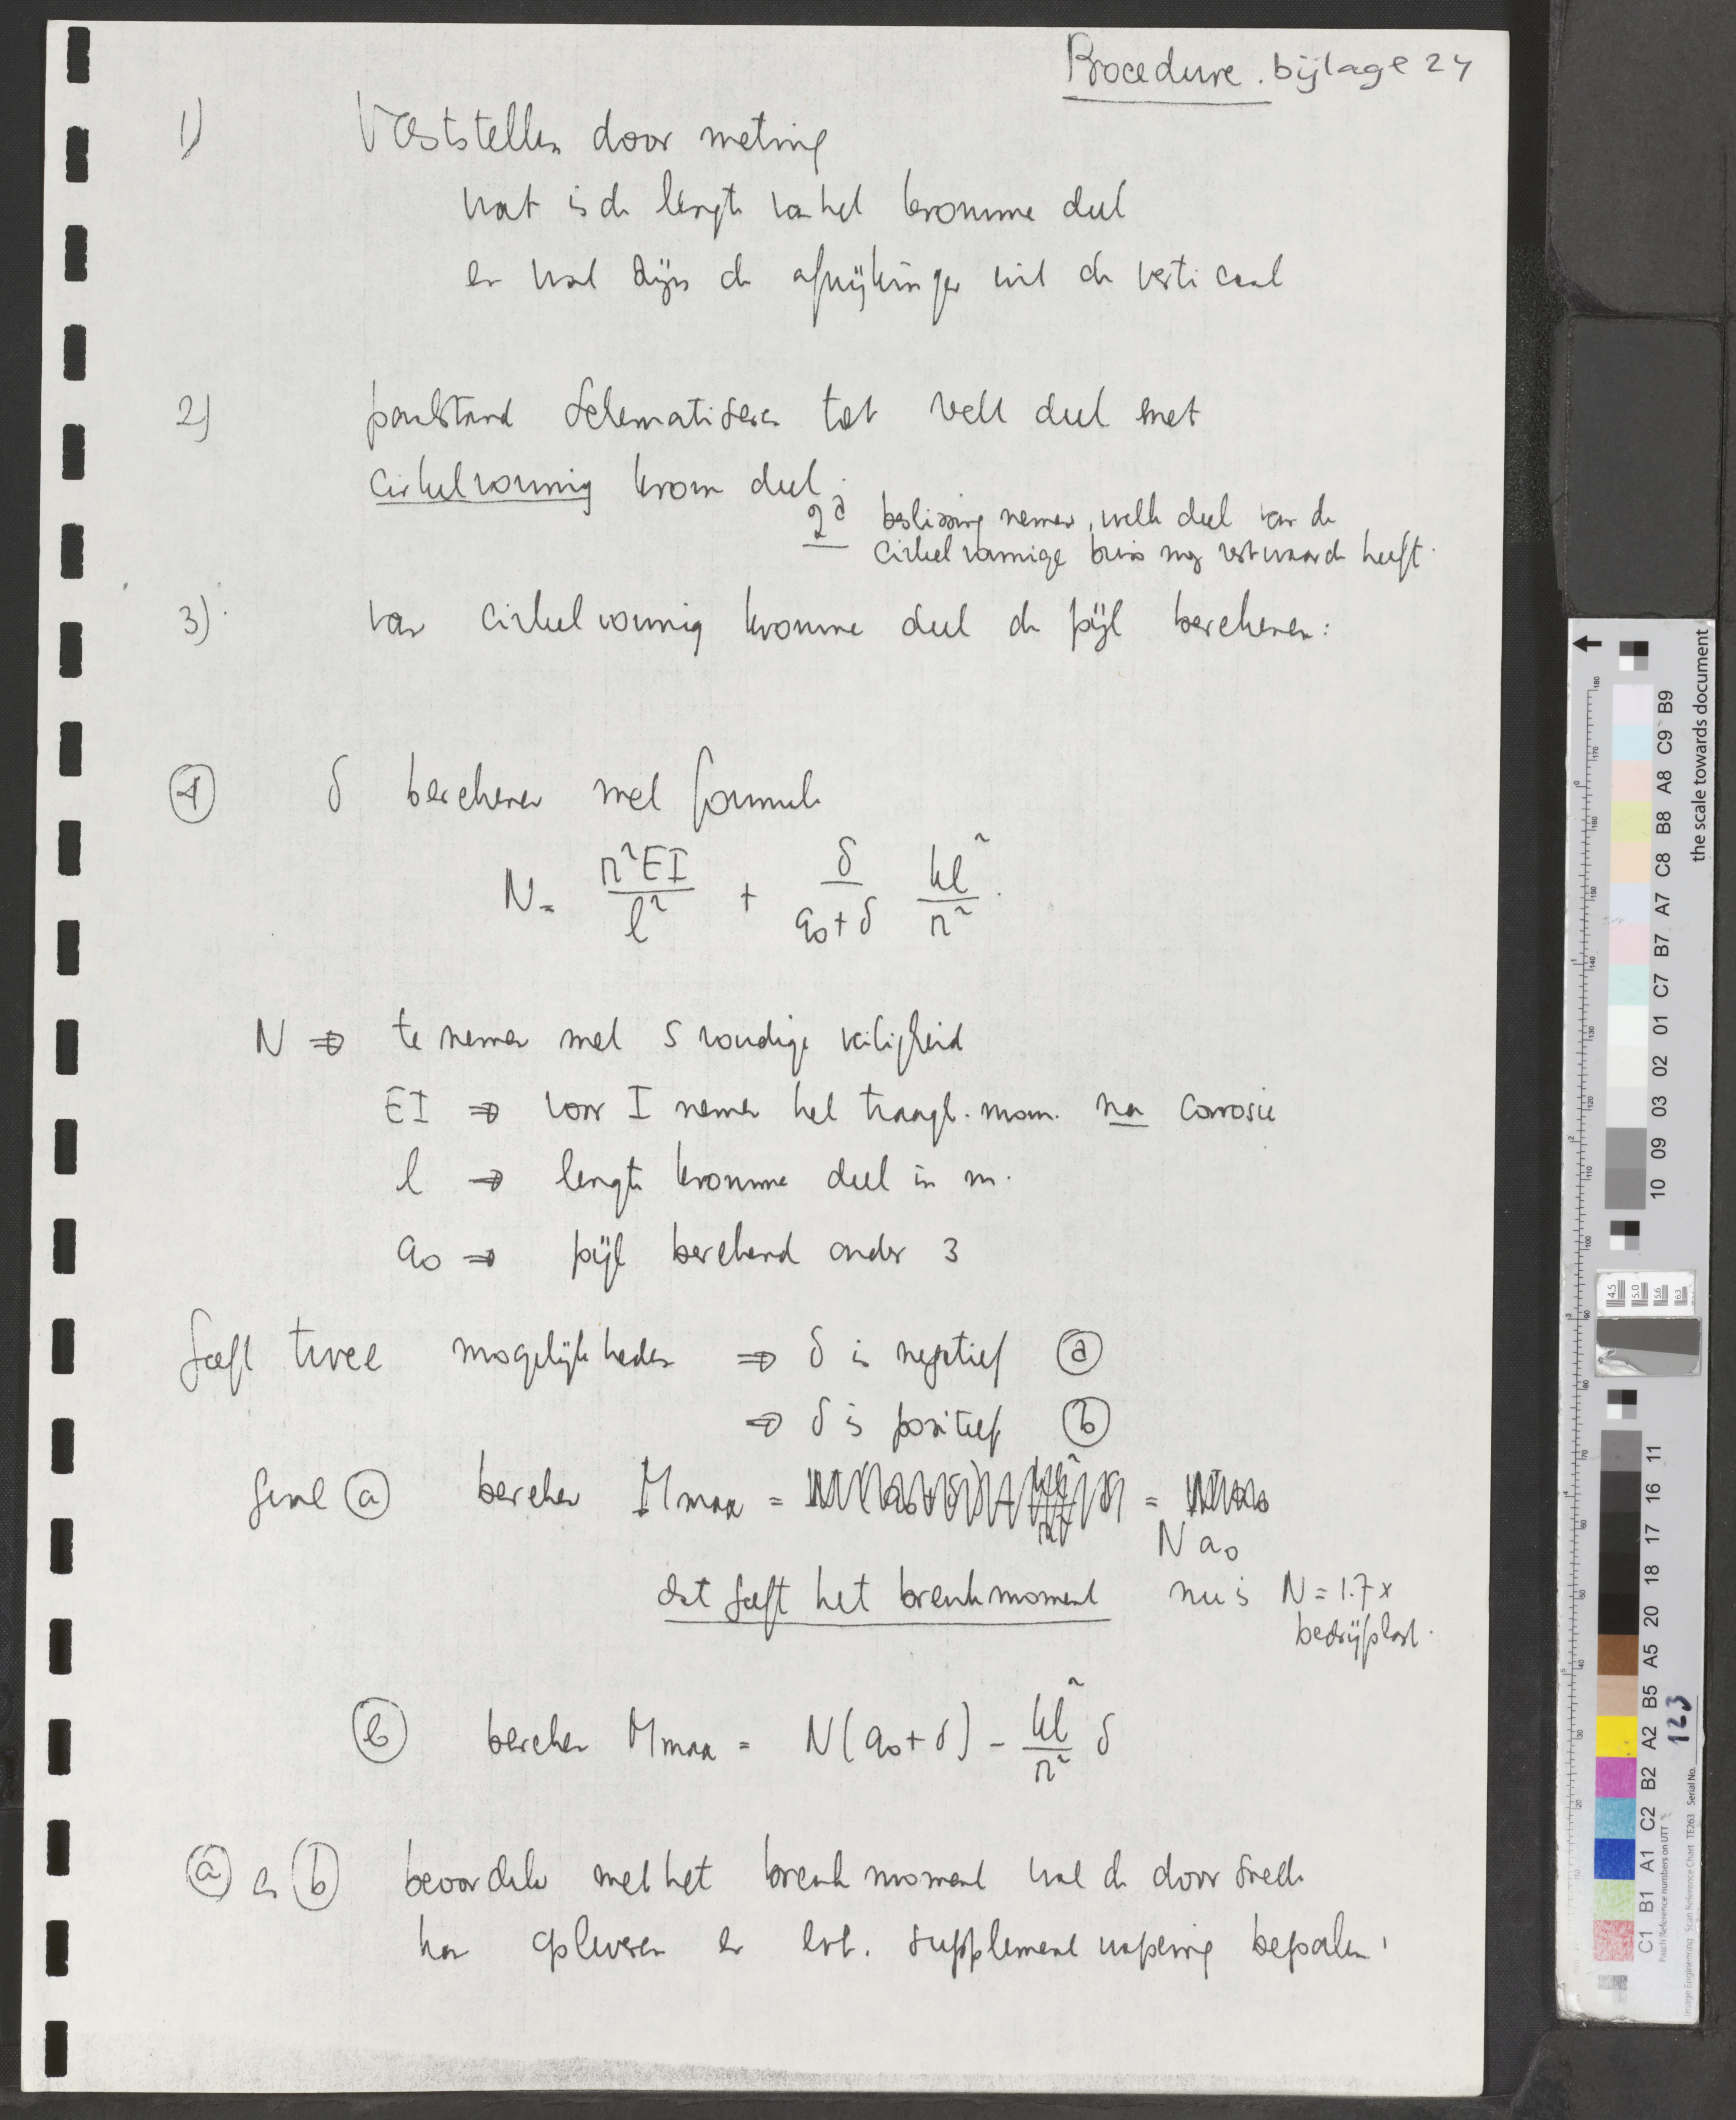 Procedure. bijlage 24
1) Vaststellen door meting
wat is de lengte van het kromme deel
en wat zijn de afwijkingen uit de verticaal
2) paalstand schematiseren tot recht deel met
cirkelvormig krom deel.
2a beslissing nemen, welk deel van de
cirkelvormige buis nog restwaarde heeft.
3) van cirkelvormig kromme deel de pijl berekenen:
4 δ berekenen met formule
N = π²EI / l² + δ / (a₀+δ) kl² / π².
N ⇒ te nemen met 5 voudige veiligheid
EI ⇒ voor I nemen het traagh. mom. na corrosie
l ⇒ lengte kromme deel in m.
a₀ ⇒ pijl berekend onder 3
Geeft twee mogelijkheden ⇒ δ is negatief a
⇒ δ is positief b
Geval a bereken Mmax = =
N a₀
dat geeft het breukmoment nu is N = 1.7 x
bedrijfslast.
b bereken Mmax = N(a₀+δ) - kl² / π² δ
a en b beoordelen met het breukmoment wat de doorsnede
kan opleveren en evt. supplement wapening bepalen!
the scale towards document
C1 B1 A1 C2 B2 A2 B5 A5 20 18 17 16 11
10 09 03 02 01 C7 B7 A7 C8 B8 A8 C9 B9
4.5 5.0 5.6 6.3
Image Engineering Scan Reference Chart TE263 Serial No. 123
Patch Reference numbers on UTT